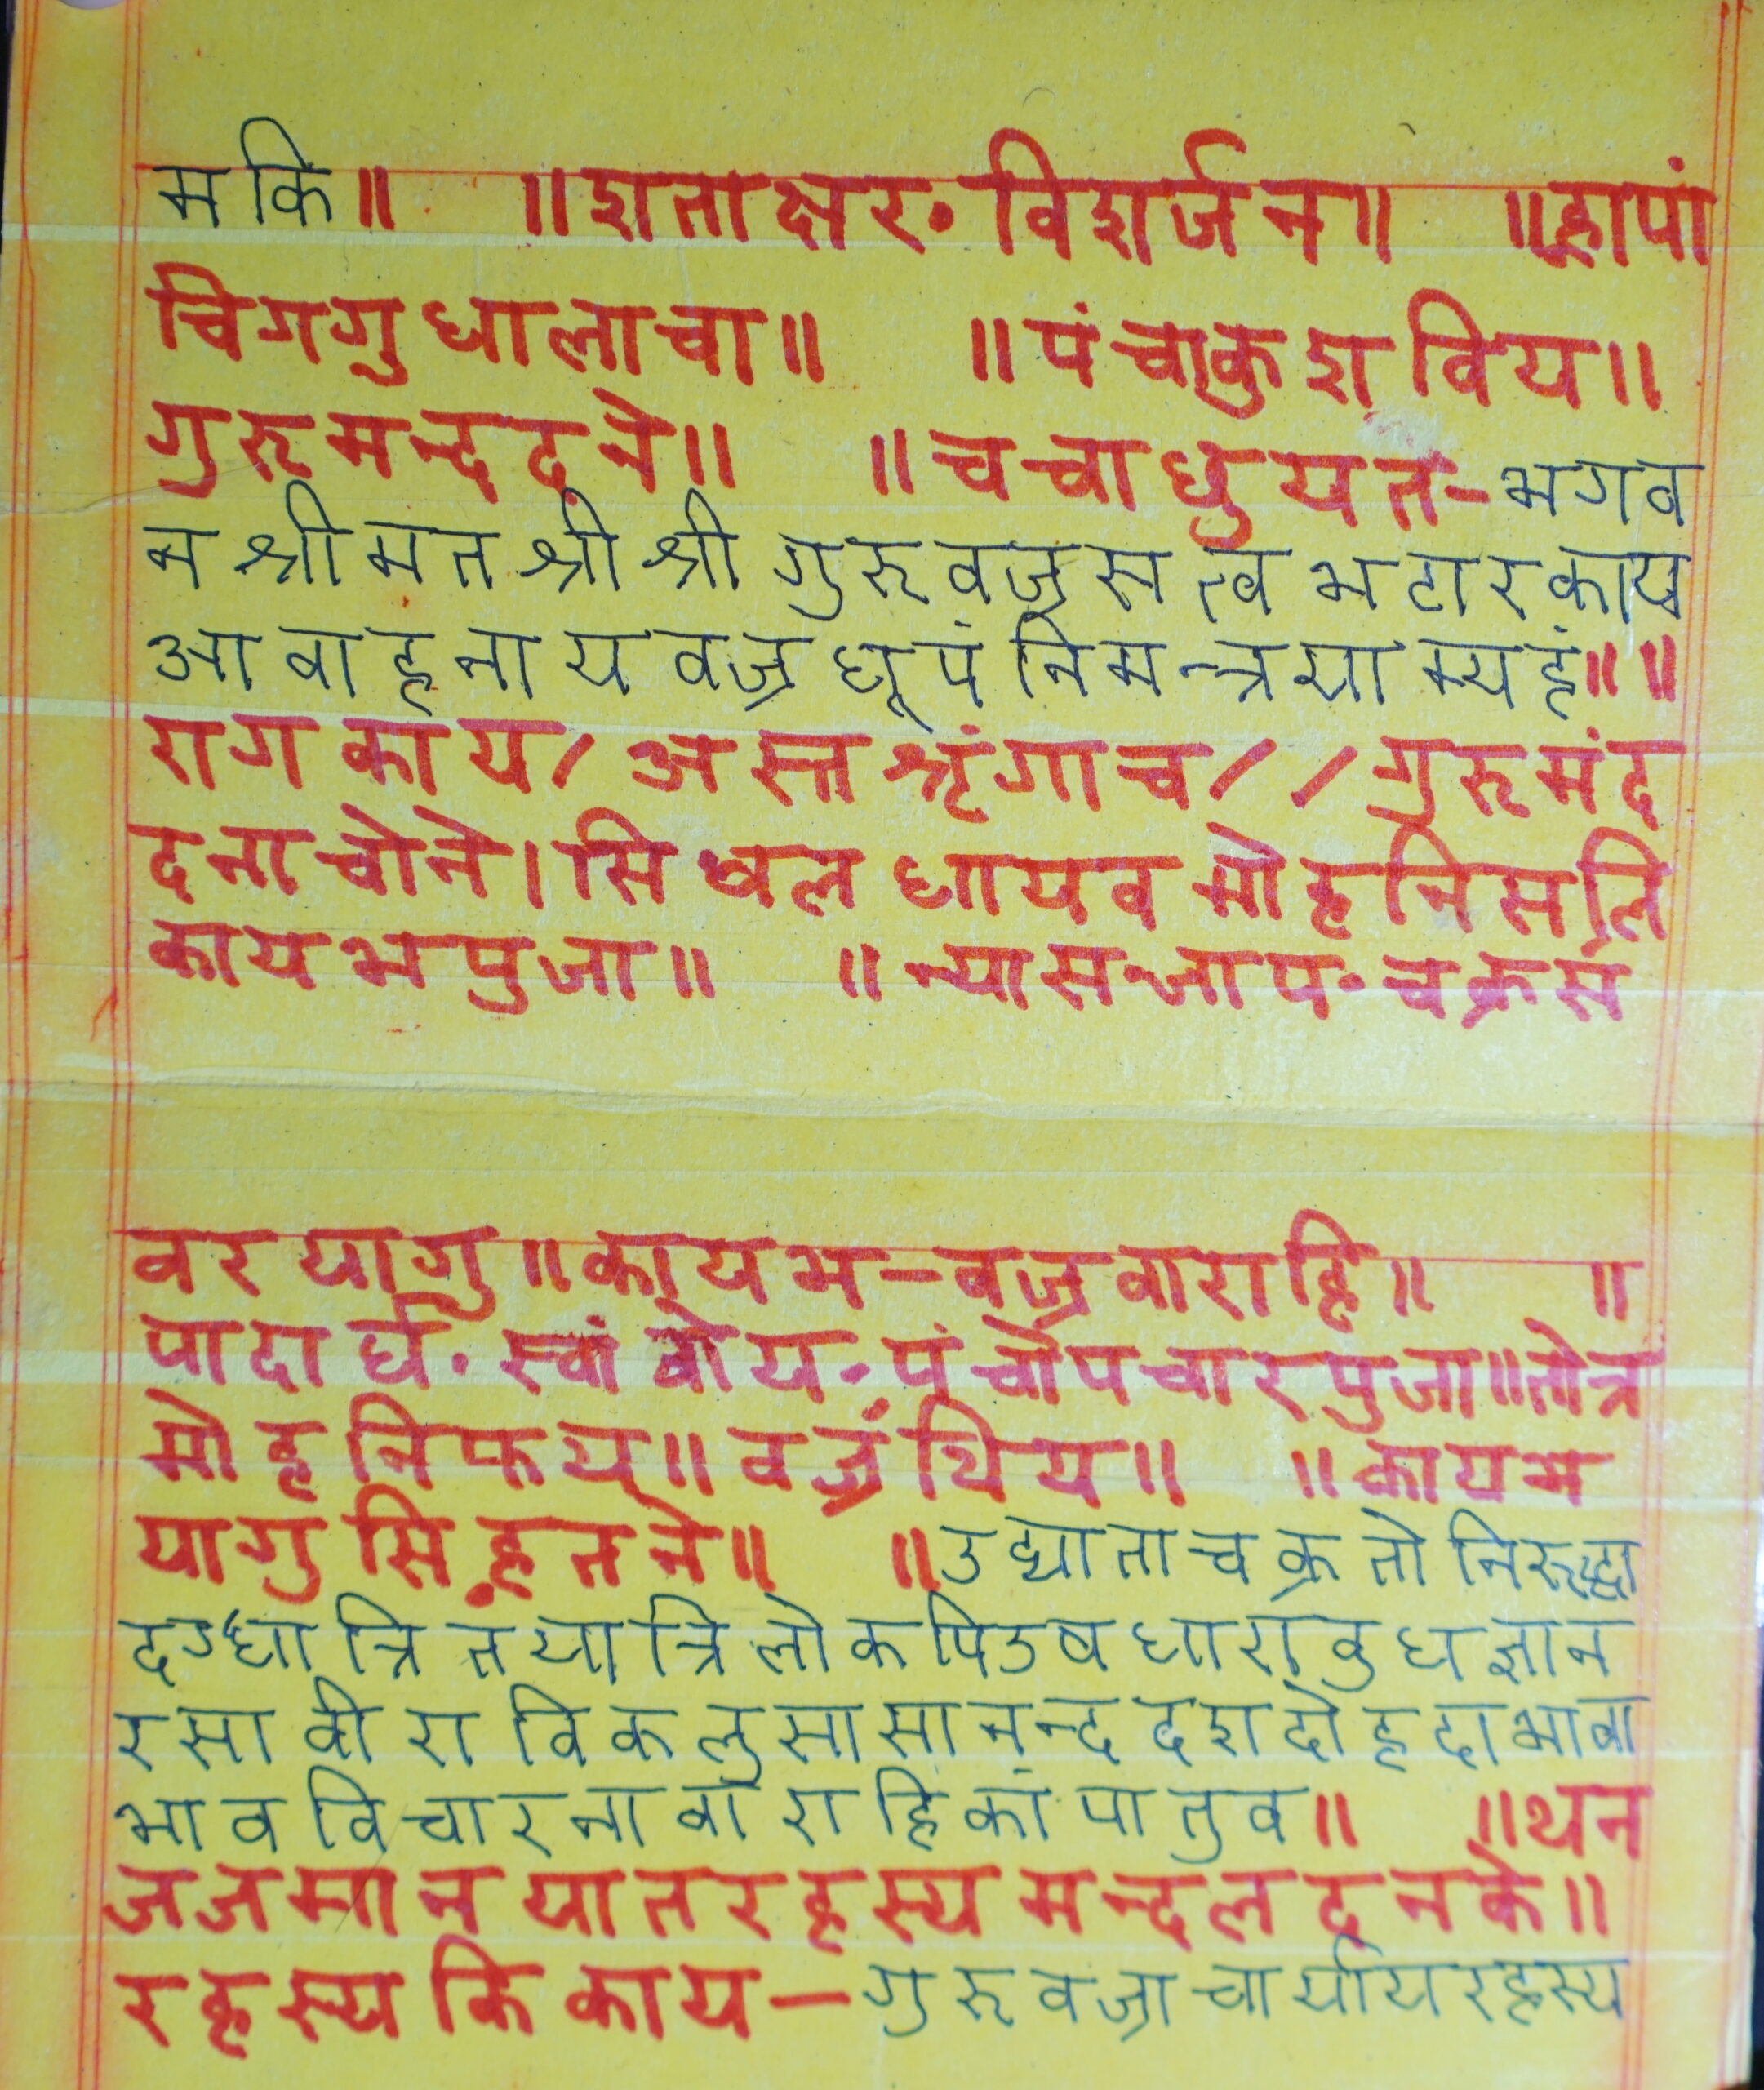 मकि॥ ॥शताक्षर॰ विशर्जन॥ ॥ह्रापां
चिगगु धालाचा॥ ॥पंचाकुश विय॥
गुरुमन्ददने॥ ॥चचाधुयत-भगव
न श्रीमत श्री श्री गुरुवज्रसत्व भटारकाय
आवाहनाय वज्रधूपं निमन्त्रयाम्यहं॥ ॥
राग काय/अस्त श्रृंगाच//गुरुमंद
दनाचोने।सिधल धायव मोहनिसलि
कायभपुजा॥ ॥न्यासजाप॰चक्रसं
वरयागु॥कायभ-वज्रवाराहि॥ ॥
पादार्घ॰स्वां बोय॰पंचोपचारपुजा॥तोत्र
मोहनिफय॥वज्रंथिय॥ ॥कायभ
यागु सिह्रतने॥ ॥उद्याताचक्रतो निरूद्धा
दग्धात्रितयात्रिलोकपिउषधाराबुधज्ञान
रसावीराविकलुसासानन्ददशदोहदाभावा
भावविचारनावाराहिकांपातुव॥ ॥थन
जजमानयात रहस्य मन्दल दनके॥
रहस्य कि काय-गुरुवज्राचार्याय रहस्य